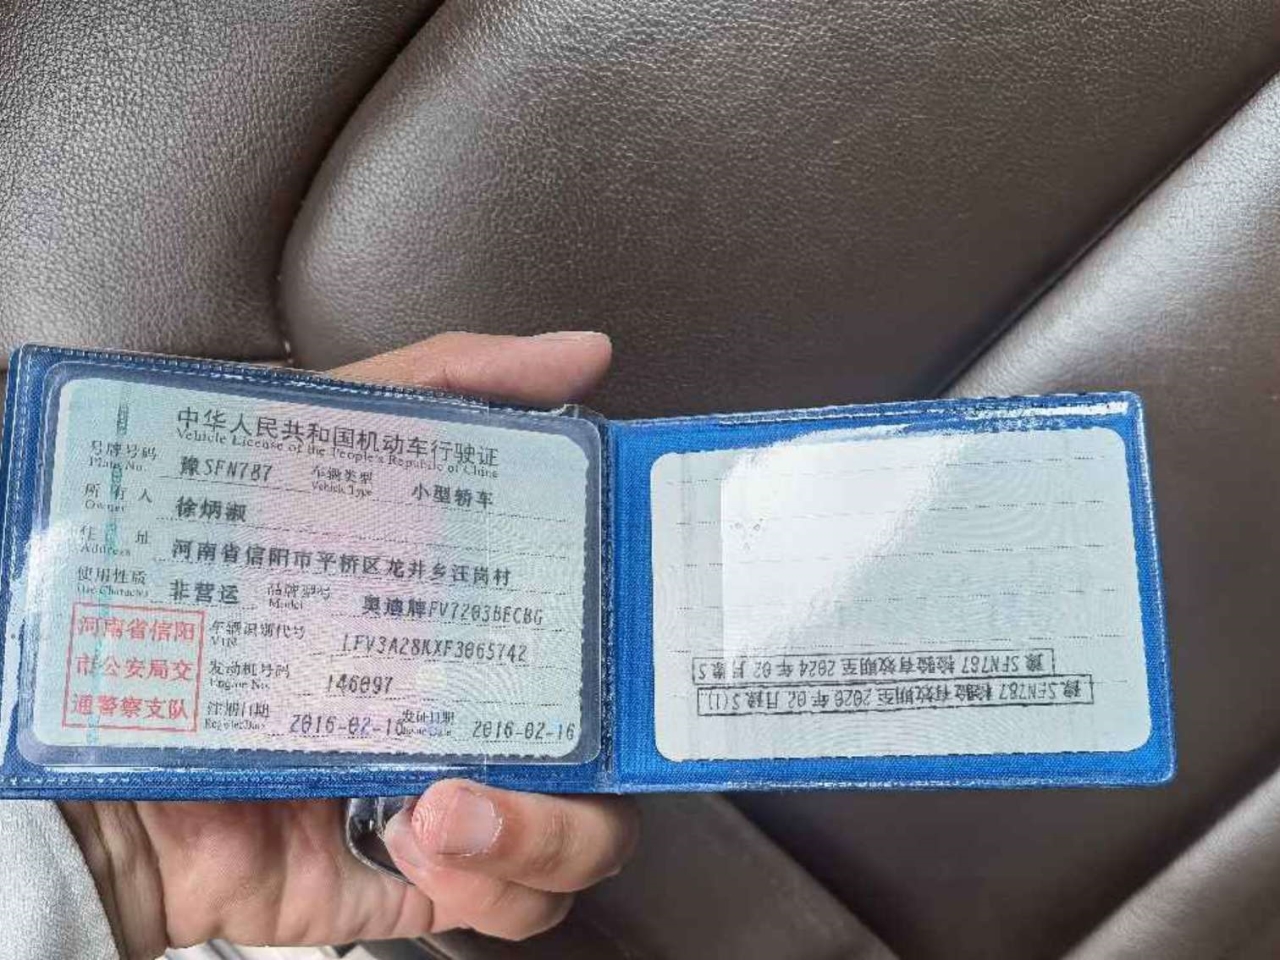 中华人民共和国机动车行驶证
Vehicle License of the People's Republic of China
号牌号码 豫SFN787 车辆类型 小型轿车
Plate No. Vehicle Type
所有人 徐炳淑
Owner
住址 河南省信阳市平桥区龙井乡汪岗村
Address
使用性质 非营运 品牌型号 奥迪牌FV7203BECBG
Use Character Model
河南省信阳
市公安局交
通警察支队
车辆识别代号 LFV3A28KXF3065742
VIN
发动机号码 146097
Engine No.
注册日期 2016-02-16 发证日期 2016-02-16
Register Date Issue Date
豫SFN787 检验有效期至 2020年02月豫S(1)
豫SFN787 检验有效期至 2024年02月豫S